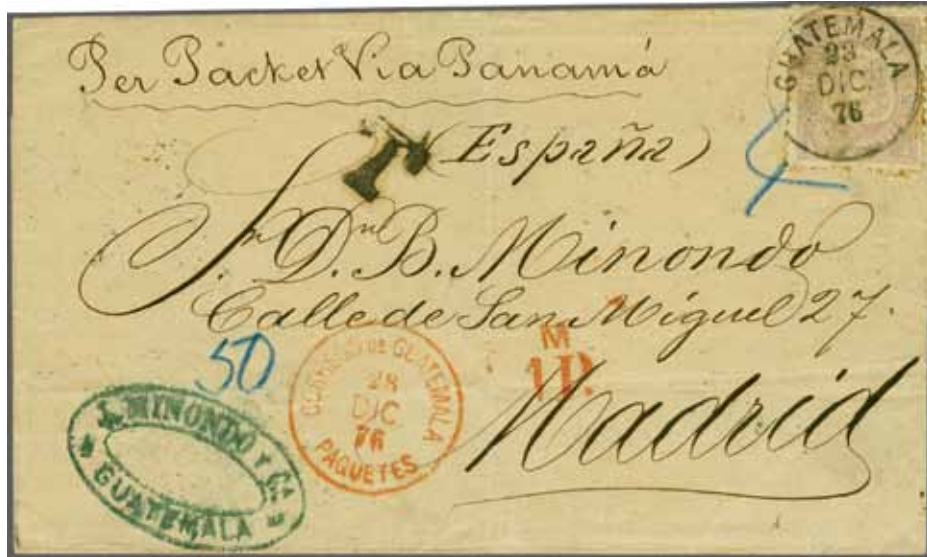 Per Packet Via Panamá
GUATEMALA
23
DIC.
76
T
(España)
4
Sr. Dn. B. Minondo
Calle de San Miguel 27.
Madrid
50
CORREOS DE GUATEMALA
28
DIC
76
PAQUETES
M
1 D.
J. MINONDO Y CA
GUATEMALA